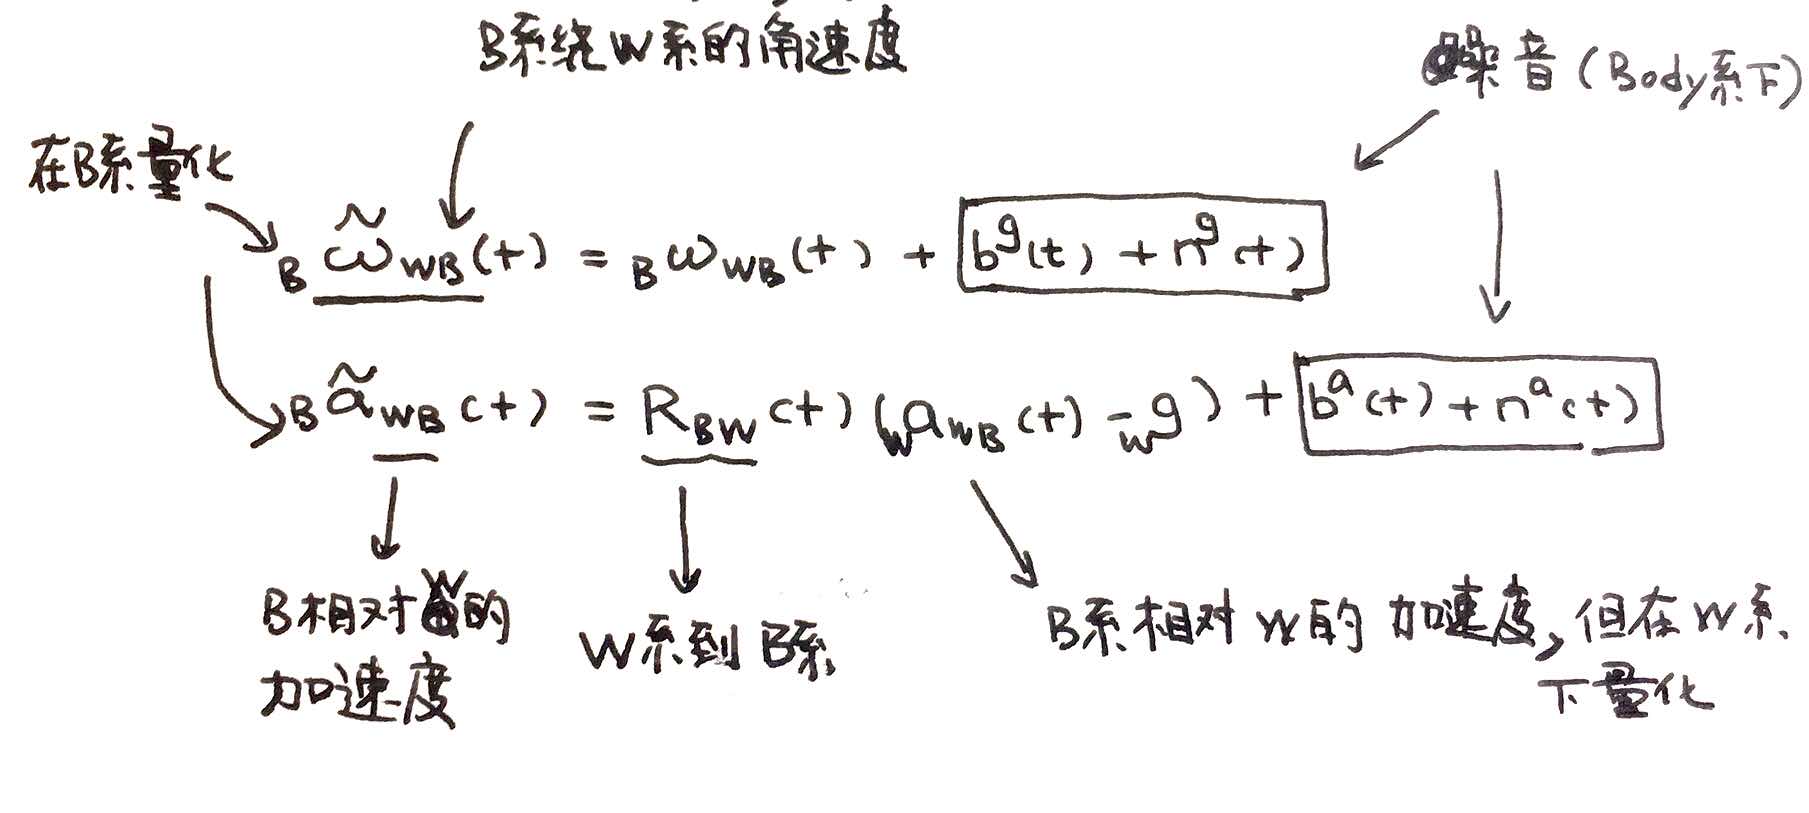 B系绕W系的角速度
噪音(Body系下)
在B系量化
B ω̃ WB (t) = B ω WB (t) + b^g(t) + n^g(t)
B ã WB (t) = R BW (t) (W a WB (t) - W g) + b^a(t) + n^a(t)
B相对W的
加速度
W系到B系
B系相对W的加速度,但在W系
下量化